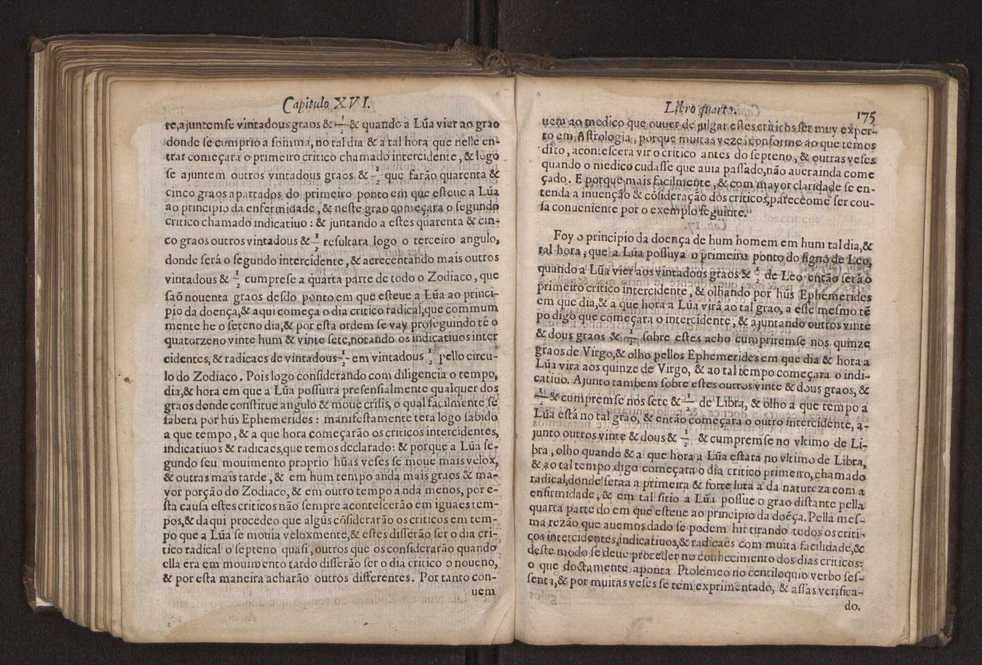 Capitulo XVI.
te,ajuntemse vintadous graos & 1/2 & quando a Lũa vier ao grao
donde se cumprio a somma, no tal dia & a tal hora que nelle en-
trar começara o primeiro critico chamado intercidente, & logo
se ajuntem outros vintadous graos & 1/2 que farão quarenta &
cinco graos apartados do primeiro ponto em que esteve a Lũa
ao principio da enfermidade, & neste grao começara o segundo
critico chamado indicatiuo: & juntando a estes quarenta & cin-
co graos outros vintadous & 1/2 resultara logo o terceiro angulo,
donde será o segundo intercidente, & acrecentando mais outros
vintadous & 1/2 cumprese a quarta parte de todo o Zodiaco, que
saõ nouenta graos desdo ponto em que esteue a Lũa ao princi-
pio da doença, & aqui começa o dia critico radical, que commum
mente he o seteno dia, & por esta ordem se vay proseguindo tè o
quatorzeno vinte hum & vinte sete, notando os indicatiuos inter
cidentes, & radicaes de vintadous 1/2 em vintadous 1/2 pello circu-
lo do Zodiaco. Pois logo considerando com diligencia o tempo,
dia, & hora em que a Lũa possuira presensialmente qualquer dos
graos donde constitue angulo & moue crisis, o qual facilmente se
sabera por hũs Ephemerides: manifestamente tera logo sabido
a que tempo, & a que hora começarão os criticos intercidentes,
indicatiuos & radicaes, que temos declarado: & porque a Lũa se-
gundo seu mouimento proprio hũas veses se moue mais velox,
& outras mais tarde, & em hum tempo anda mais graos & ma-
yor porção do Zodiaco, & em outro tempo anda menos, por e-
sta causa estes criticos não sempre acontecerão em iguaes tem-
pos, & daqui procedeo que algũs cõsiderarão os criticos em tem-
po que a Lũa se mouia veloxmente, & estes disserão ser o dia cri-
tico radical o septeno quasi, outros que os considerarão quando
ella era em mouimento tardo disserão ser o dia critico o noueno,
& por esta maneira acharão outros differentes. Por tanto con-
uem
Libro quarto. 175
uem ao medico que ouuer de julgar estes criticos ser muy exper-
to em Astrologia, porque muitas vezes conforme ao que temos
dito, acontescera vir o critico antes do septeno, & outras veses
quando o medico cudasse que auia passado, não auera inda come
çado. E porque mais facilmente, & com mayor claridade se en-
tenda a invenção & cõsideração dos criticos, pareceome ser cou-
sa conueniente por o exemplo seguinte.
Foy o principio da doença de hum homem em hum tal dia, &
tal hora, que a Lũa possuya o primeiro ponto do signo de Leo,
quando a Lũa vier aos vintadous graos & 1/2 de Leo então será o
primeiro critico intercidente, & olhando por hũs Ephemerides
em que dia, & a que hora a Lũa virá ao tal grao, a esse mesmo tẽ
po digo que começara o intercidente, & ajuntando outros vinte
& dous graos & 1/2 sobre estes acho cumpriremse nos quinze
graos de Virgo, & olho pellos Ephemerides em que dia & hora a
Lũa vira aos quinze de Virgo, & ao tal tempo começara o indi-
catiuo. Ajunto tambem sobre estes outros vinte & dous graos, &
1/2 & cumpremse nos sete & 1/2 de Libra, & olho a que tempo a
Lũa está no tal grao, & então começara o outro intercidente, a-
junto outros vinte & dous & 1/2 & cumpremse no vltimo de Li-
bra, olho quando & a que hora a Lũa estara no vltimo de Libra,
& ao tal tempo digo começara o dia critico primeiro, chamado
radical, donde seraa a primeira & forte luta a da natureza com a
enfirmidade, & em tal sitio a Lũa possue o grao distante pella
quarta parte do em que esteue ao principio da doẽça. Pella mes-
ma rezão que auemos dado se podem hir tirando todos os criti-
cos intercidentes, indicatiuos, & radicaes com muita facilidade, &
deste modo se deue proceder no conhecimento dos dias criticos:
o que doctamente aponta Ptolemeo no centiloquio verbo ses-
senta, & por muitas veses se tem exprimentado, & assas verifica-
do.